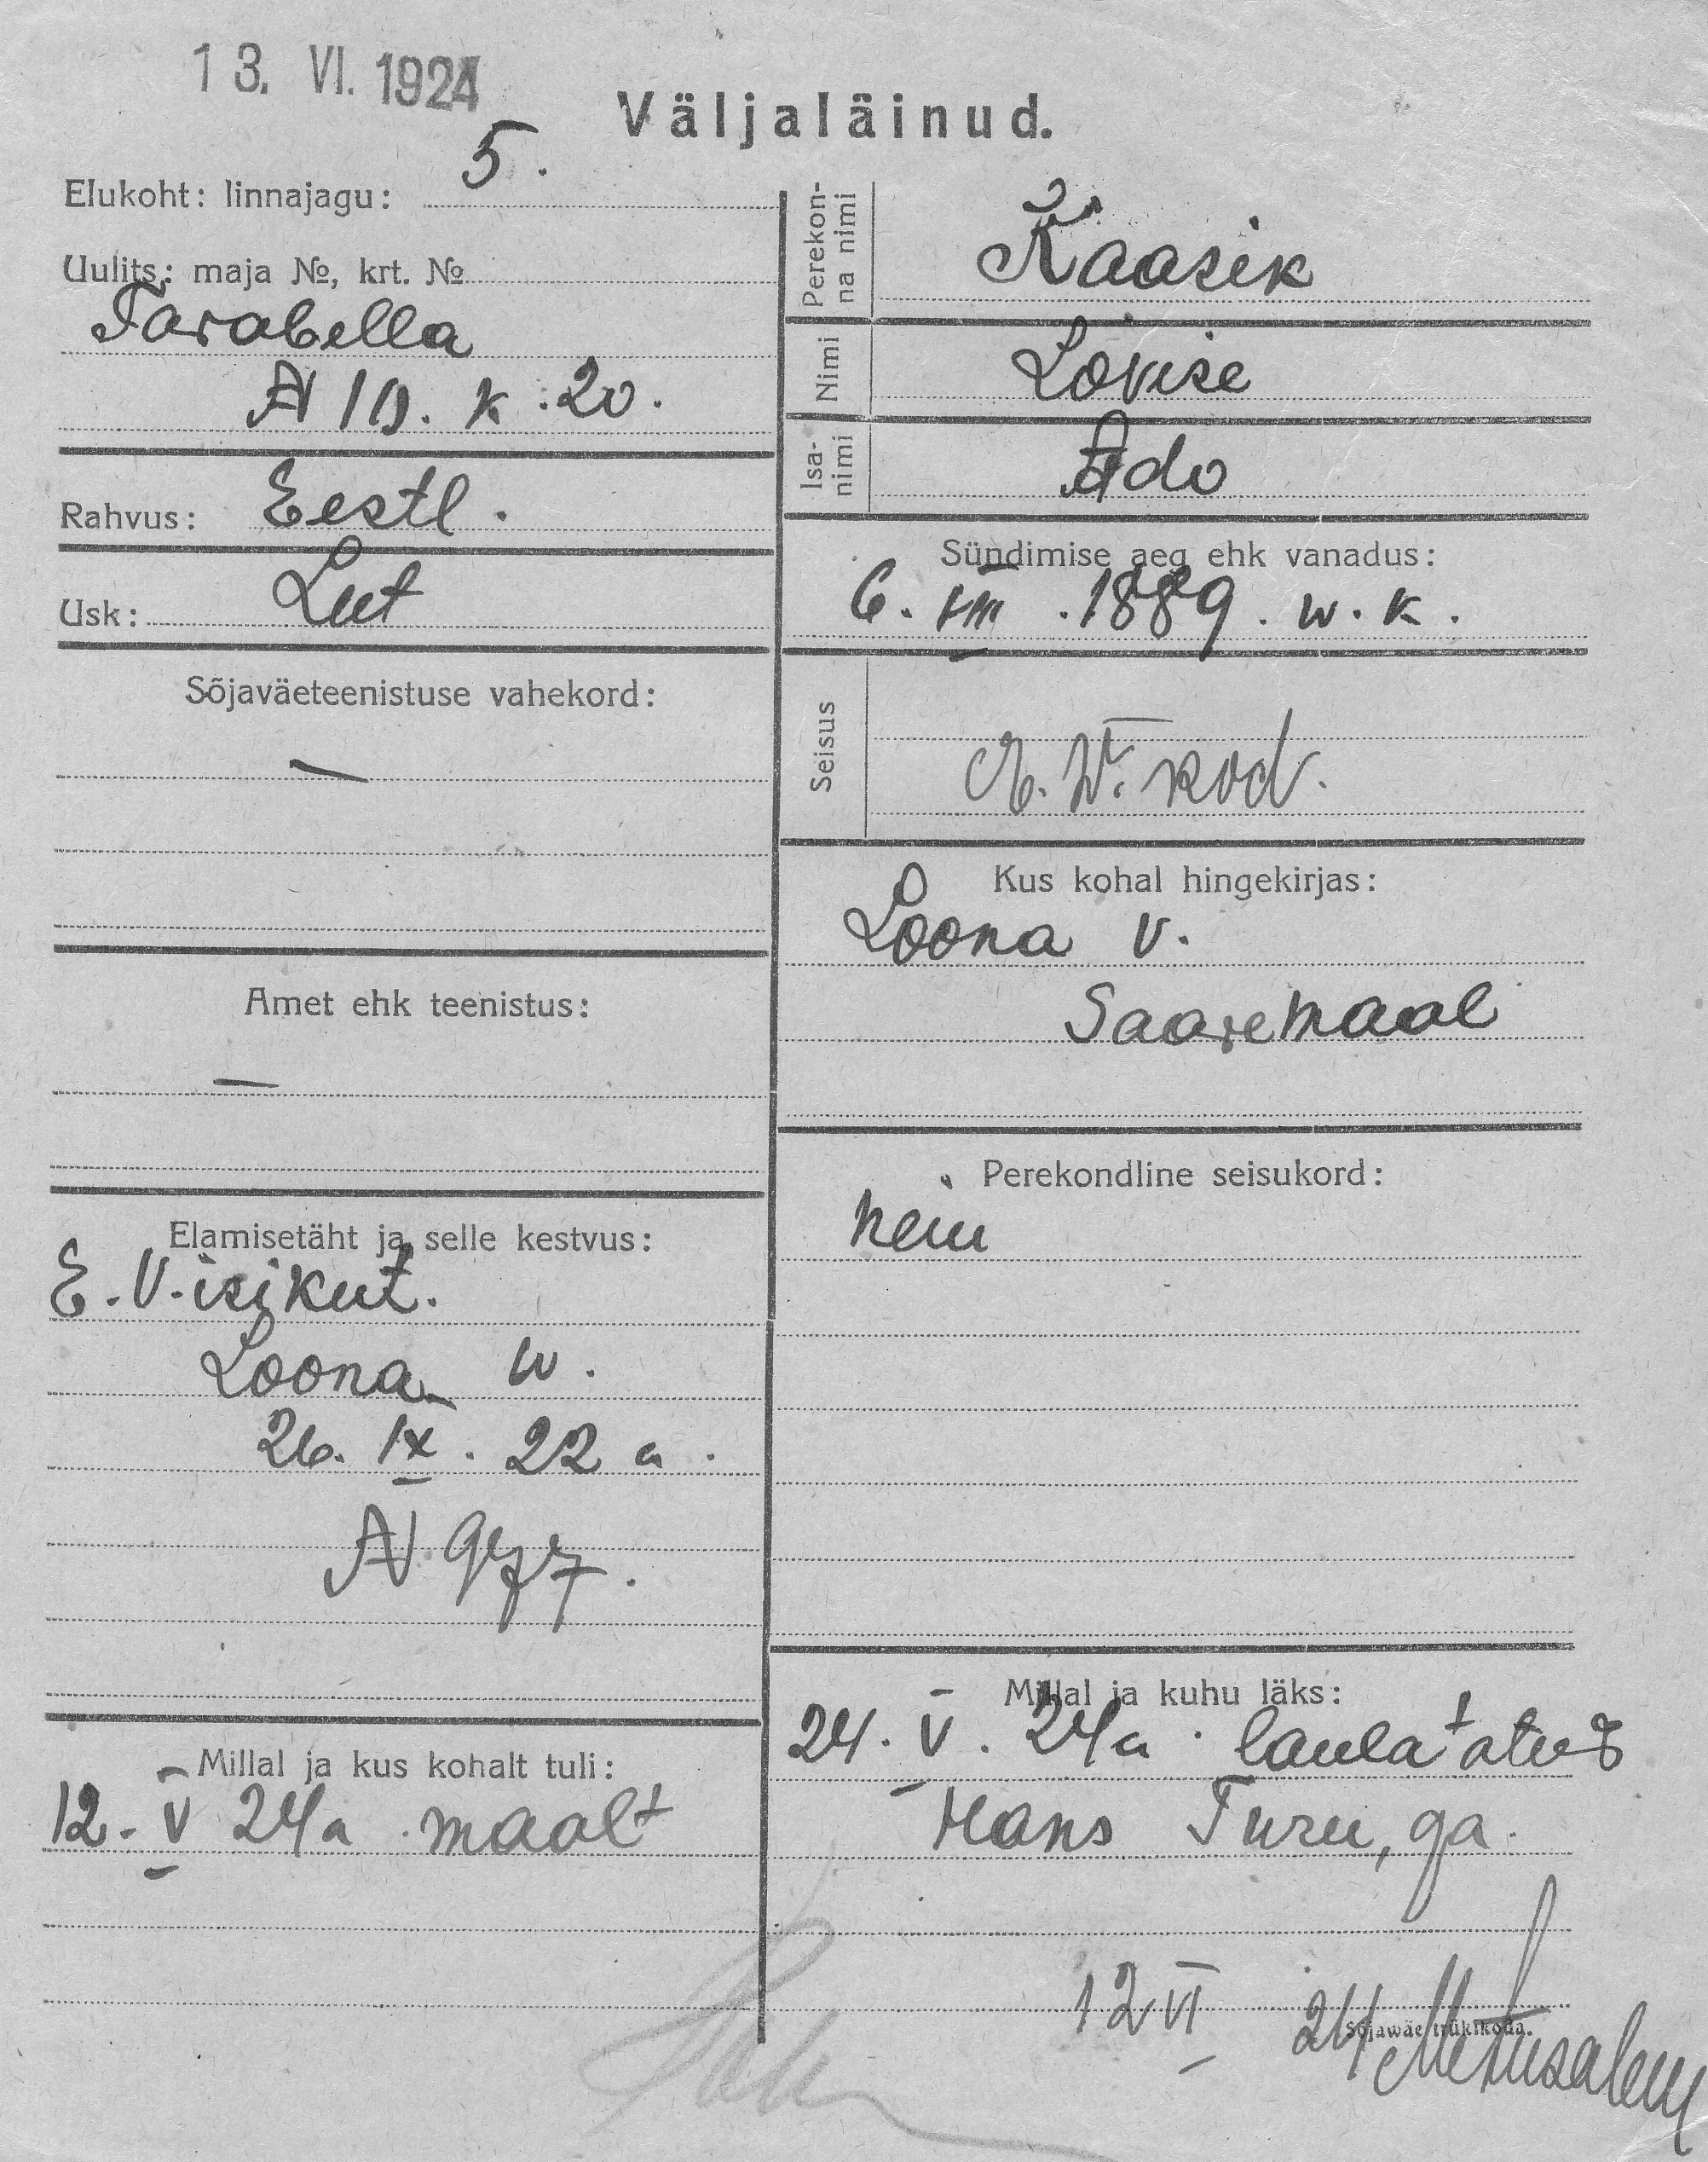 13. VI. 1924
Väljaläinud.
Elukoht: linnajagu: 5.
Uulits: maja №, krt. №
Tarabella
№ 10. k. 20.
Rahvus: Eestl.
Usk: Lut
Sõjaväeteenistuse vahekord:
—
Amet ehk teenistus:
—
Elamisetäht ja selle kestvus:
E.V. isikut.
Loona w.
26. IX. 22 a.
№ 977.
Millal ja kus kohalt tuli:
12. V 24 a maalt
Perekonna nimi
Kaasik
Nimi
Lovise
Isanimi
Ado
Sündimise aeg ehk vanadus:
6. VIII. 1889. w. k.
Seisus
E. W. kod.
Kus kohal hingekirjas:
Loona v.
Saaremaal
Perekondline seisukord:
neiu
Millal ja kuhu läks:
24. V. 24 a. laulatatud
Hans Turu, ga.
12 VI 24
Sõjawäe trükikoda.